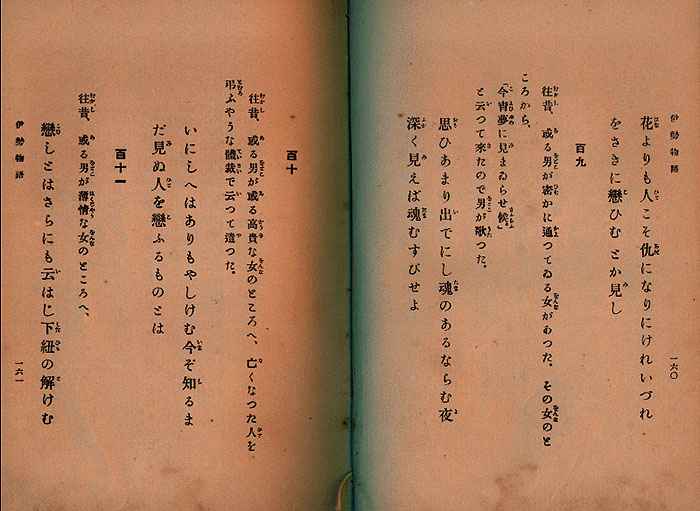 伊勢物語
一六〇
花よりも人こそ仇になりにけれいづれ
をさきに戀ひむとか見し
百九
往昔、或る男が密かに通つてゐる女があつた。その女のと
ころから、
「今宵夢に見まゐらせ候。」
と云つて來たので男が歌つた。
思ひあまり出でにし魂のあるならむ夜
深く見えば魂むすびせよ
百十
往昔、或る男が或る高貴な女のところへ、亡くなつた人を
弔ふやうな體裁で云つて遣つた。
いにしへはありもやしけむ今ぞ知るま
だ見ぬ人を戀ふるものとは
百十一
往昔、或る男が薄情な女のところへ、
戀しとはさらにも云はじ下紐の解けむ
伊勢物語
一六一